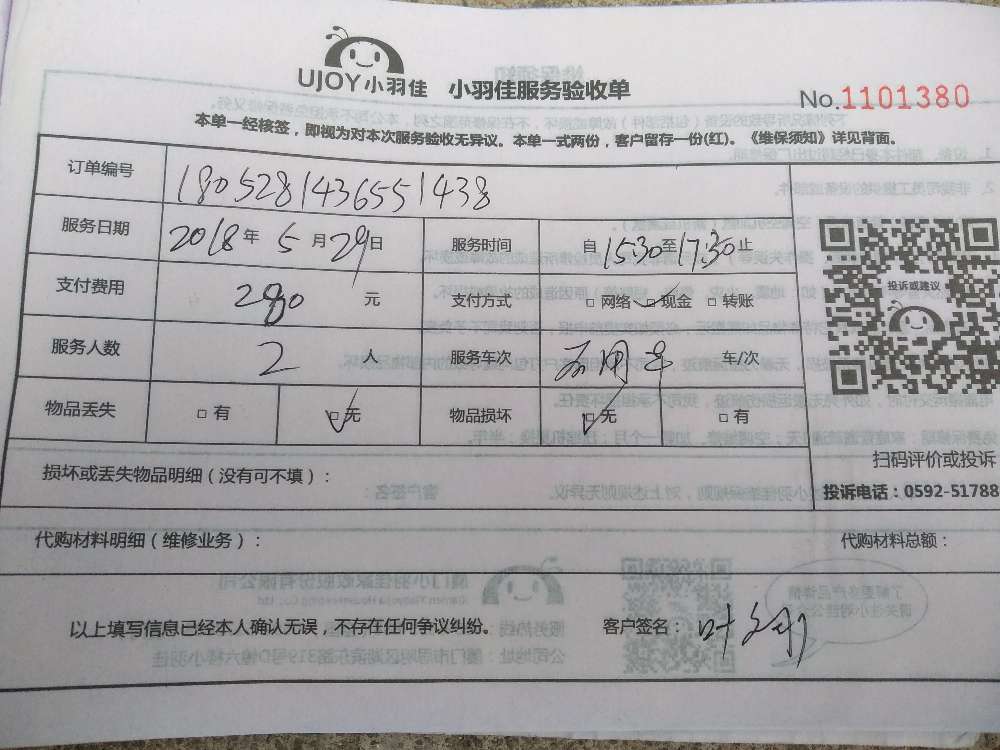 UJOY小羽佳 小羽佳服务验收单
No.1101380
本单一经核签，即视为对本次服务验收无异议。本单一式两份，客户留存一份(红)。《维保须知》详见背面。
订单编号 1805281436551438
服务日期 2018年5月29日 服务时间 自15:30至17:30止
支付费用 280元 支付方式 □网络 □现金 □转账
服务人数 2人 服务车次 车/次
物品丢失 □有 □无 物品损坏 □无 □有
投诉或建议
扫码评价或投诉
投诉电话：0592-51788
损坏或丢失物品明细（没有可不填）：
代购材料明细（维修业务）： 代购材料总额：
以上填写信息已经本人确认无误，不存在任何争议纠纷。 客户签名：叶